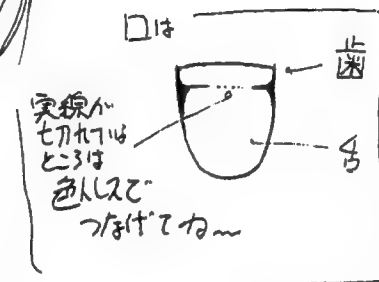 口は
歯
実線が
切れている
ところは
色トレスで
つなげてね〜
舌